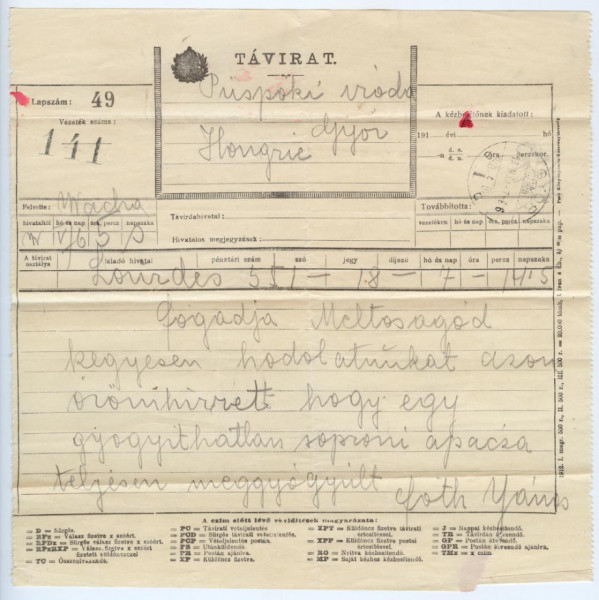 TÁVIRAT.
Püspöki iroda
Győr
Hongrie
Lapszám: 49
Vezeték száma:
141
A kézbesítőnek kiadatott:
191 évi hó
d. e. óra perczkor.
n d. u.
Felvette: Wacha
Továbbította:
Távirdahivatal:
Hivatalos megjegyzések:
hivataltól hó és nap óra, perz napszaka
vezetéken hó és nap óra, perz napszaka
A távirat osztálya feladó hivatal pénztári szám szó jegy díjszó hó és nap óra perz napszaka
Lourdes 551 — 18 — 7 — 1415
Fogadja Meltosagod
kegyesen hodolatunkat azon
örömhirrett hogy egy
gyogyithatlan soproni apacza
teljesen meggyógyült
Tóth János
A czim előtt lévő rövidítések magyarázata:
= D = Sürgős.
= RPx = Válasz fizetve x szóért.
= RPDx = Sürgős válasz fizetve x szóért.
= RPxRXP = Válasz fizetve x szóért fizetett küldönczczel
= TC = Összeolvasandó.
= PC = Távirati vételjelentés
= PCD = Sürgős távirati vételjelentés.
= PCP = Vételjelentés postán.
= FS = Utánküldendő.
= PR = Postán ajánlva.
= XP = Küldöncz fizetve.
= XPT = Küldöncz fizetve távirati értesítéssel.
= XPP = Küldöncz fizetve postai értesítéssel.
= RO = Nyitva kézbesítendő.
= MP = Saját kézhez kézbesítendő.
= J = Nappal kézbesítendő.
= TR = Távirdán átveendő.
= GP = Postán átveendő.
= GPR = Postán átveendő ajánlva.
= TMx = x szám.